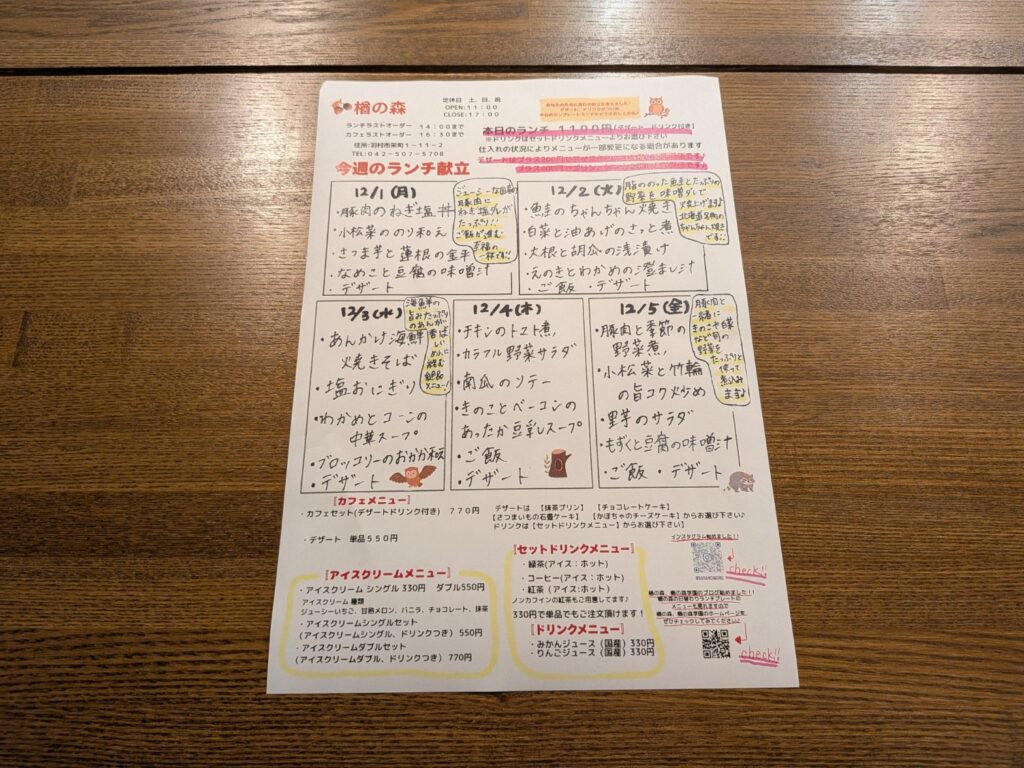 楢の森
定休日 土、日、祝
OPEN:11:00
CLOSE:17:00
ランチラストオーダー 14:00まで
カフェラストオーダー 16:30まで
住所:羽村市栄町1-11-2
TEL:042-507-5708
本日のランチ 1100円(デザート、ドリンク付き)
※ドリンクはセットドリンクメニューよりお選び下さい
仕入れの状況によりメニューが一部変更になる場合があります
今週のランチ献立
12/1(月)
・豚肉のねぎ塩丼
・小松菜ののり和え
・さつま芋と蓮根の金平
・なめこと豆腐の味噌汁
・デザート
豚肉に
ねぎ塩ダレが
たっぷり!!
ご飯が進む
幸福の
一杯です!!
12/2(火)
・鮭のちゃんちゃん焼き
・白菜と油あげのさっと煮
・大根と胡瓜の浅漬け
・えのきとわかめの澄まし汁
・ご飯 ・デザート
脂ののった鮭とたっぷりの
野菜を味噌ダレで
北海道名物の
ちゃんちゃん焼き
です!!
12/3(水)
・あんかけ海鮮
焼きそば
・塩おにぎり
・わかめとコーンの
中華スープ
・ブロッコリーのおかか和え
・デザート
海鮮の
旨みたっぷり
のあんが
香ばしい
めんに
絡む
絶品
メニュー!
12/4(木)
・チキンのトマト煮
・カラフル野菜サラダ
・南瓜のソテー
・きのことベーコンの
あったか豆乳スープ
・ご飯
・デザート
12/5(金)
・豚肉と季節の
野菜煮
・小松菜と竹輪
の旨コク炒め
・里芋のサラダ
・もずくと豆腐の味噌汁
・ご飯 ・デザート
豚肉と
一緒に
きのこや白菜
など旬の
野菜を
たっぷりと
使って
煮込み
ます♪
『カフェメニュー』
・カフェセット(デザートドリンク付き) 770円
・デザート 単品550円
デザートは 【抹茶プリン】 【チョコレートケーキ】
【さつまいもの石畳ケーキ】 【かぼちゃのチーズケーキ】からお選び下さい♪
ドリンクは【セットドリンクメニュー】からお選び下さい♪
『アイスクリームメニュー』
・アイスクリーム シングル 330円 ダブル550円
アイスクリーム 種類
ジューシーいちご、甘熟メロン、バニラ、チョコレート、抹茶
・アイスクリームシングルセット
(アイスクリームシングル、ドリンクつき) 550円
・アイスクリームダブルセット
(アイスクリームダブル、ドリンクつき) 770円
『セットドリンクメニュー』
・緑茶(アイス:ホット)
・コーヒー(アイス:ホット)
・紅茶 (アイス:ホット)
ノンカフェインの紅茶もご用意してます♪
330円で単品でもご注文頂けます!
『ドリンクメニュー』
・みかんジュース (国産) 330円
・りんごジュース (国産) 330円
インスタグラム始めました!!
check!!
楢の森、楢の森学園のブログ始めました!!
楢の森の日替わりランチプレートの
メニューも見れますので
楢の森、楢の森学園のホームページを、
ぜひチェックしてみてください♪
check!!